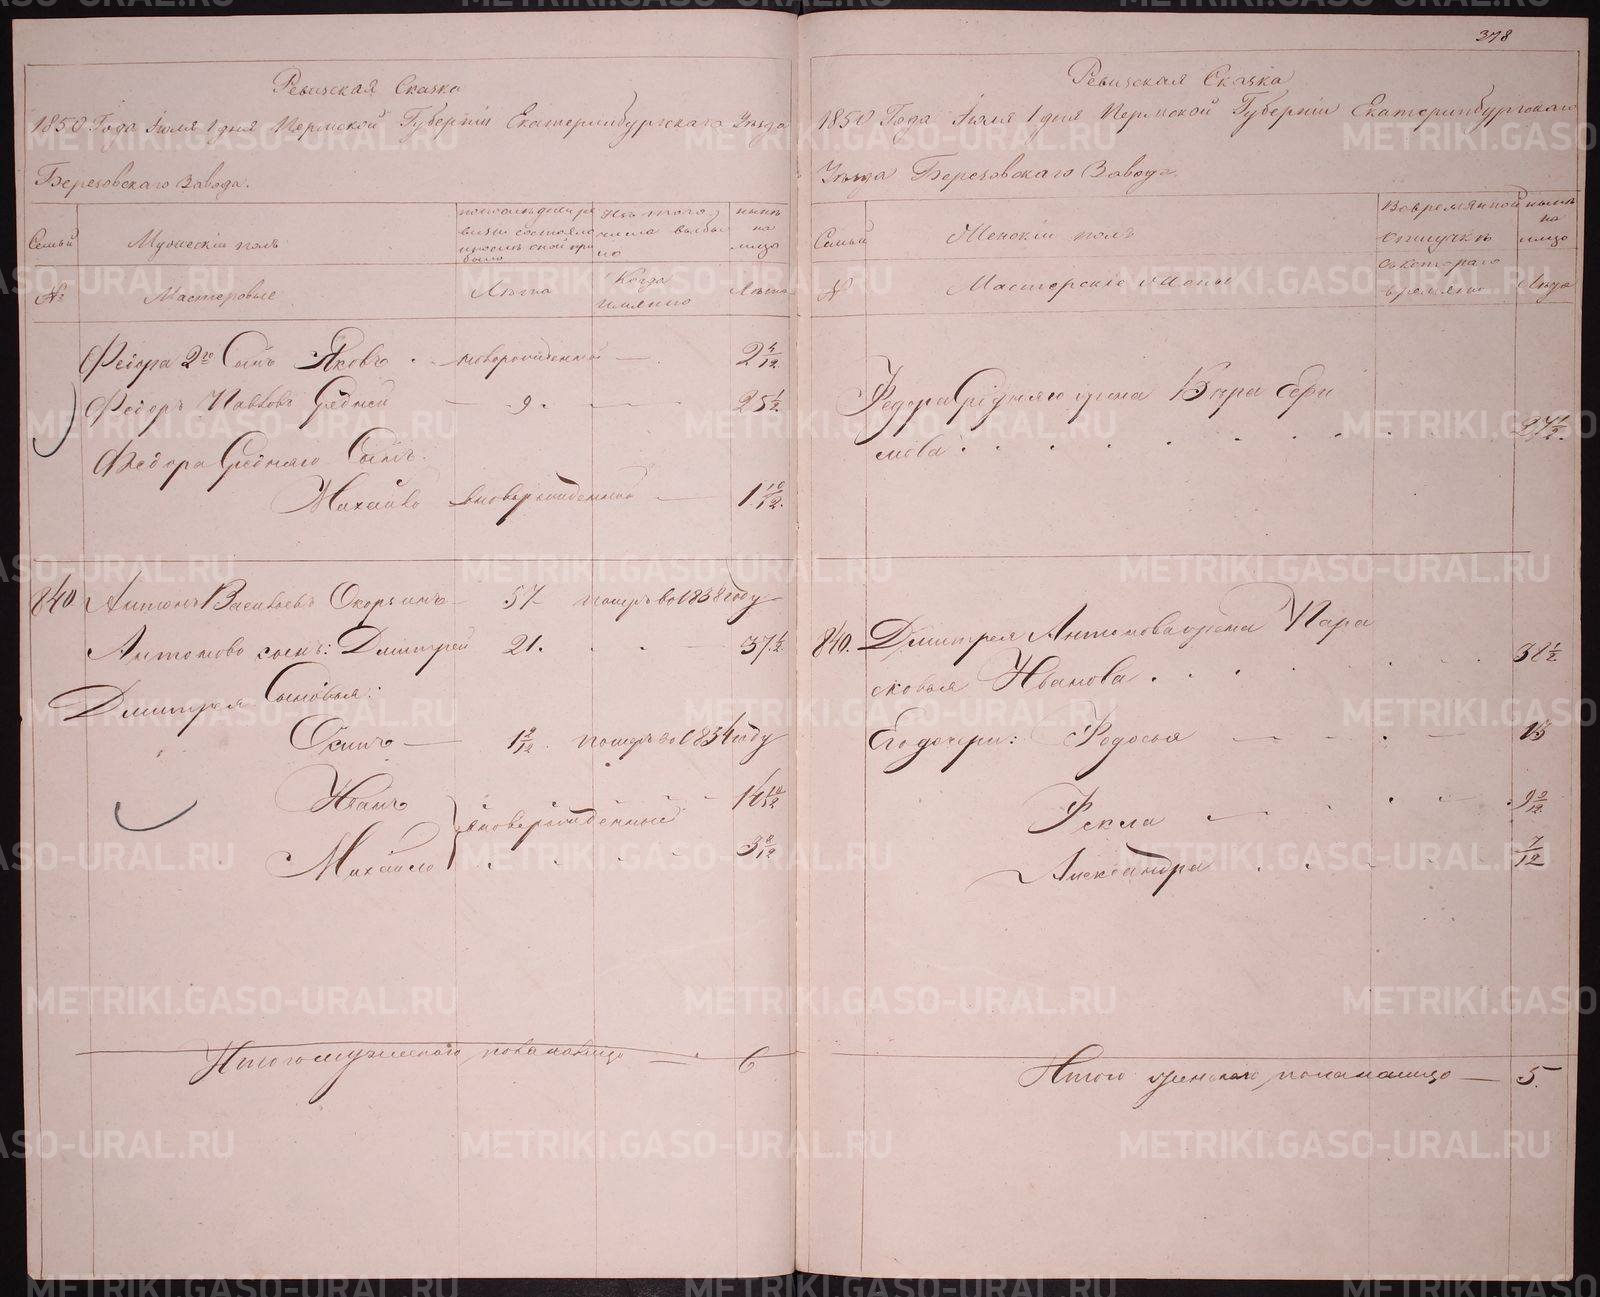 378
Ревизская Сказка
1850 Года Іюля 1 дня Пермской Губерніи Екатеринбургскаго Уѣзда
Березовскаго Завода.
Семьи
Мужескій полъ
по послѣдней ре
визіи состояло
и послѣ оной при
было
Изъ того
числа выбы
ло
нынѣ
на
лицо
№
Мастеровые
Лѣта
Когда
имянно
Лѣта
Федора 2го Сынъ Яковъ новорожденной 2 4/12
Федоръ Павловъ Средней 9. 25 1/2
Федора Средняго Сынъ:
Михайло новорожденной 1 10/12.
840 Антонъ Васильевъ 57 померъ во 1838 году
Антоново сынъ: Дмитрей 21. 37 1/2
Дмитрея Сыновья:
Осипъ 1 2/12. померъ во 1834 году
Иванъ 14 10/12
новорожденные
Михайло 3 8/12
Итого мужескаго пола налицо 6
Ревизская Сказка
1850 Года Іюля 1 дня Пермской Губерніи Екатеринбургскаго
Уѣзда Березовскаго Завода
Семьи
Женскій полъ
Во временной
отлучкѣ
нынѣ
на
лицо
№
Мастерскіе Жены
съ котораго
времяни
Лѣта
Федора Средняго жена Вѣра Ефи
мова 27 1/2.
840. Дмитрея Антонова жена Пара
сковья Иванова 38 1/2
Его дочери: Федосья 15
Фекла 9 2/12
Александра 7/12
Итого женскаго пола налицо 5.
METRIKI.GASO-URAL.RU